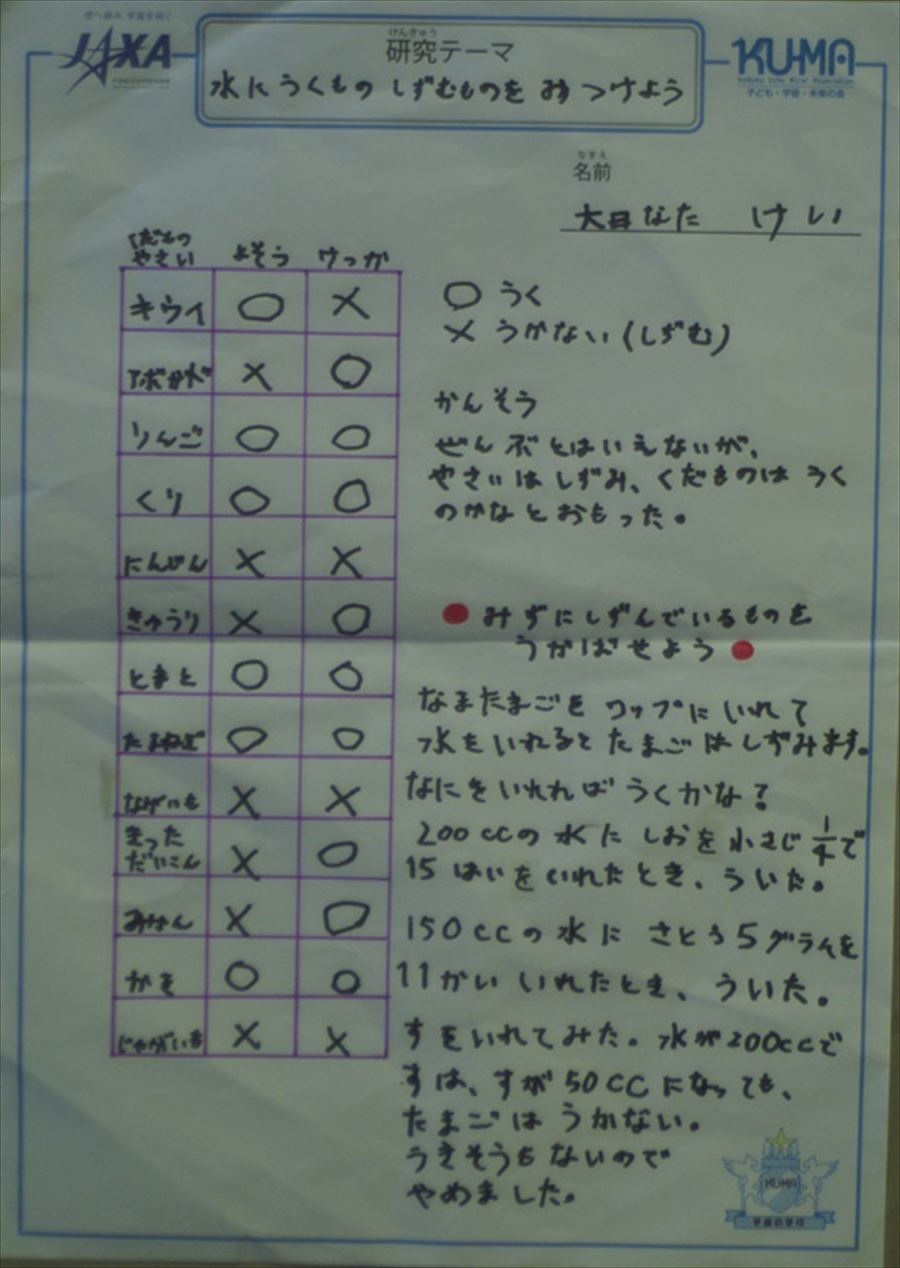 JAXA
けんきゅう
研究テーマ
水にうくもの しずむものを みつけよう
KUMA
子ども・宇宙・未来の会
なまえ
名前
大日なた けい
くだもの
やさい よそう けっか
キウイ ○ ×
アボカド × ○
りんご ○ ○
くり ○ ○
にんじん × ×
きゅうり × ○
とまと ○ ○
たまねぎ ○ ○
ながいも × ×
きった
だいこん × ○
みかん × ○
かき ○ ○
じゃがいも × ×
○ うく
× うかない(しずむ)
かんそう
ぜんぶとはいえないが、
やさいはしずみ、くだものは うく
のかなとおもった。
● みずにしずんでいるものを
うかばせよう ●
なまたまごを コップにいれて
水をいれると たまごはしずみます。
なにをいれれば うくかな?
200ccの水に しおを小さじ1/4で
15はいをいれたとき、ういた。
150ccの水に さとう5グラムを
11かい いれたとき、ういた。
すをいれてみた。水が200ccで
すは、すが50CCになっても、
たまごは うかない。
うきそうもないので
やめました。
KUMA
宇宙の学校